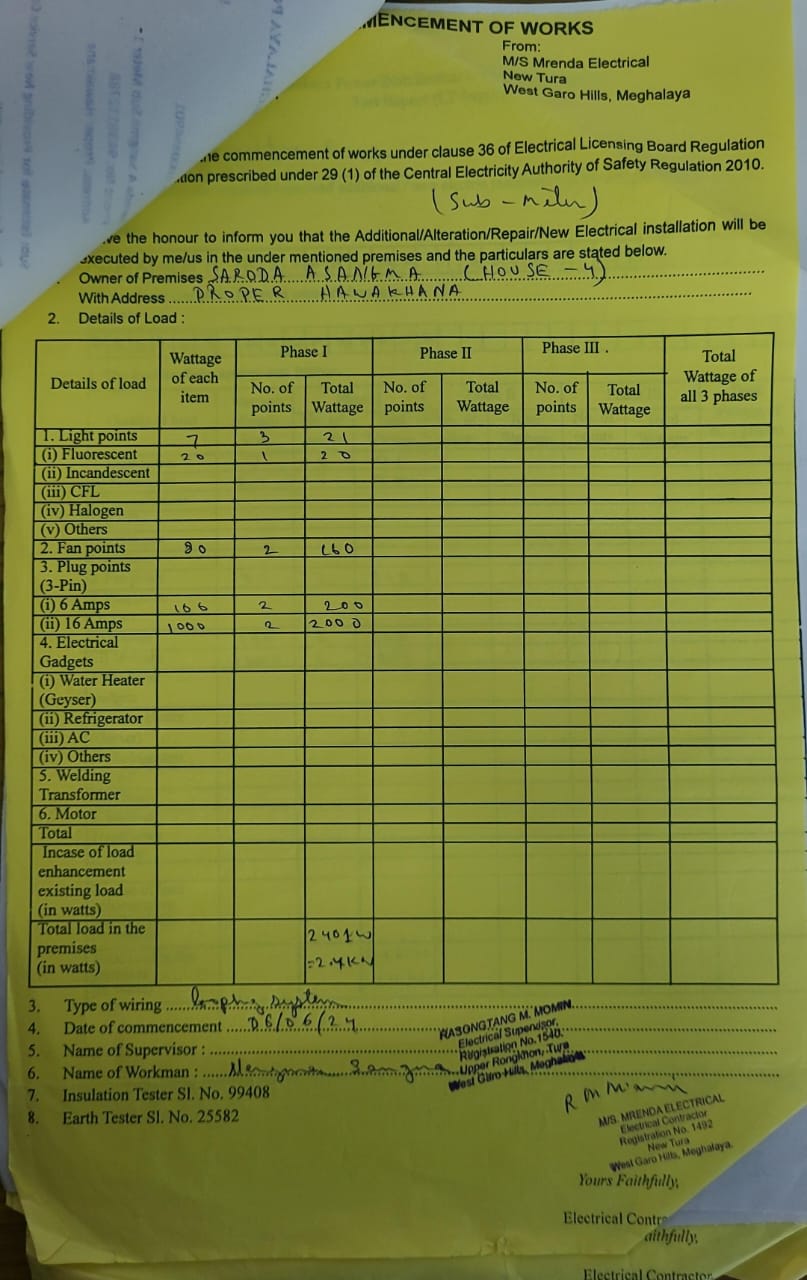 MENCEMENT OF WORKS
From:
M/S Mrenda Electrical
New Tura
West Garo Hills, Meghalaya
he commencement of works under clause 36 of Electrical Licensing Board Regulation
tion prescribed under 29 (1) of the Central Electricity Authority of Safety Regulation 2010.
(Sub - Meter)
ve the honour to inform you that the Additional/Alteration/Repair/New Electrical installation will be
executed by me/us in the under mentioned premises and the particulars are stated below.
Owner of Premises SARODA ASANGMA (HOUSE - 4)
With Address PROPER HAWAKHANA
2. Details of Load :
Details of load Wattage of each item Phase I Phase II Phase III . Total Wattage of all 3 phases
No. of points Total Wattage No. of points Total Wattage No. of points Total Wattage
1. Light points 7 3 21
(i) Fluorescent 20 1 20
(ii) Incandescent
(iii) CFL
(iv) Halogen
(v) Others
2. Fan points 80 2 160
3. Plug points
(3-Pin)
(i) 6 Amps 100 2 200
(ii) 16 Amps 1000 2 2000
4. Electrical
Gadgets
(i) Water Heater
(Geyser)
(ii) Refrigerator
(iii) AC
(iv) Others
5. Welding
Transformer
6. Motor
Total
Incase of load
enhancement
existing load
(in watts)
Total load in the
premises
(in watts)
2401W
=2.4KW
3. Type of wiring looping system
4. Date of commencement 06/06/24
5. Name of Supervisor :
RASONGTANG M. MOMIN
Electrical Supervisor,
Registration No.1540.
Upper Rongkhon, Tura
West Garo Hills, Meghalaya
6. Name of Workman : Sangma
7. Insulation Tester Sl. No. 99408
8. Earth Tester Sl. No. 25582
M/S. MRENDA ELECTRICAL
Electrical Contractor
Registration No. 1492
New Tura
West Garo Hills, Meghalaya.
Yours Faithfully,
Electrical Contr
aithfully,
Electrical Contractor